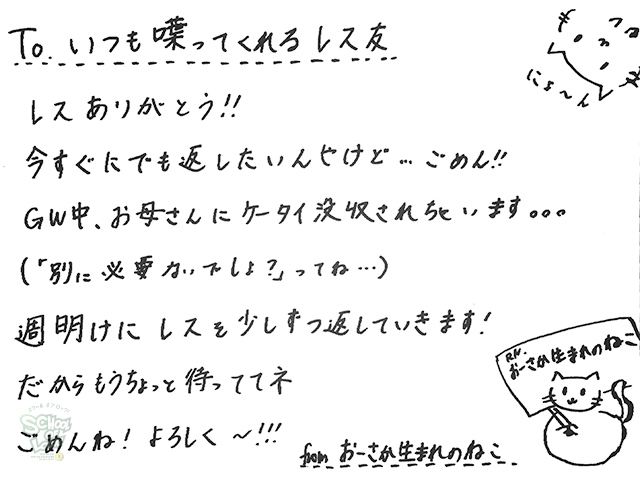 To. いつも喋ってくれるレス友
にょ～ん
レスありがとう!!
今すぐにでも返したいんやけど…ごめん!!
GW中、お母さんにケータイ没収されちゃいます。。。
(「別に必要ないでしょ?」ってね…)
週明けにレスを少しずつ返していきます!
R.N.
おーさか生まれのねこ
だからもうちょっと待っててネ
ごめんね! よろしく～!!!
from おーさか生まれのねこ
SCHOOL OF LOCK!